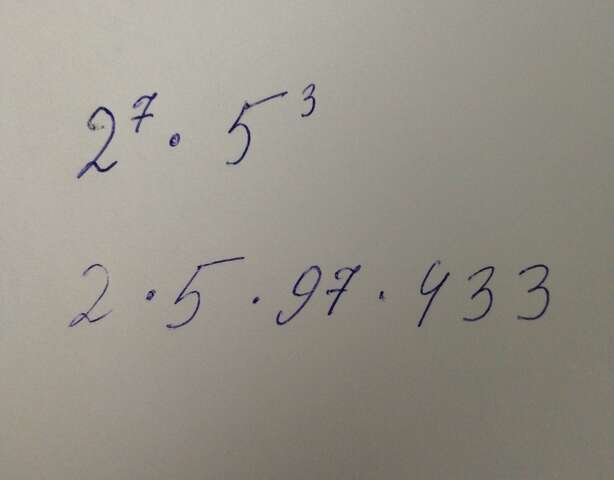 2⁷ · 5³
2 · 5 · 97 · 433